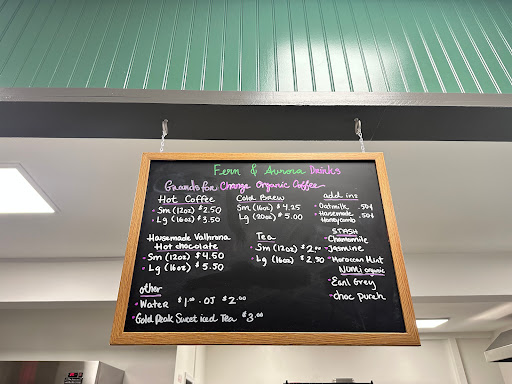 Fern & Aurora Drinks
Grounds for Change Organic Coffee
Hot Coffee
- Sm (12oz) $2.50
- Lg (16oz) $3.50
Cold Brew
Sm (16oz) $4.25
Lg (20oz) $5.00
add ins
- Oatmilk .50¢
- Housemade .50¢
Honeycomb
Housemade Valhrona
Hot chocolate
- Sm (12oz) $4.50
- Lg (16oz) $5.50
Tea
- Sm (12oz) $2.00
- Lg (16oz) $2.50
STASH
- Chamomile
- Jasmine
- Moroccan Mint
NUMI organic
- Earl Grey
- choc puerh
other
- Water $1.00 - OJ $2.00
- Gold Peak Sweet iced Tea $3.00